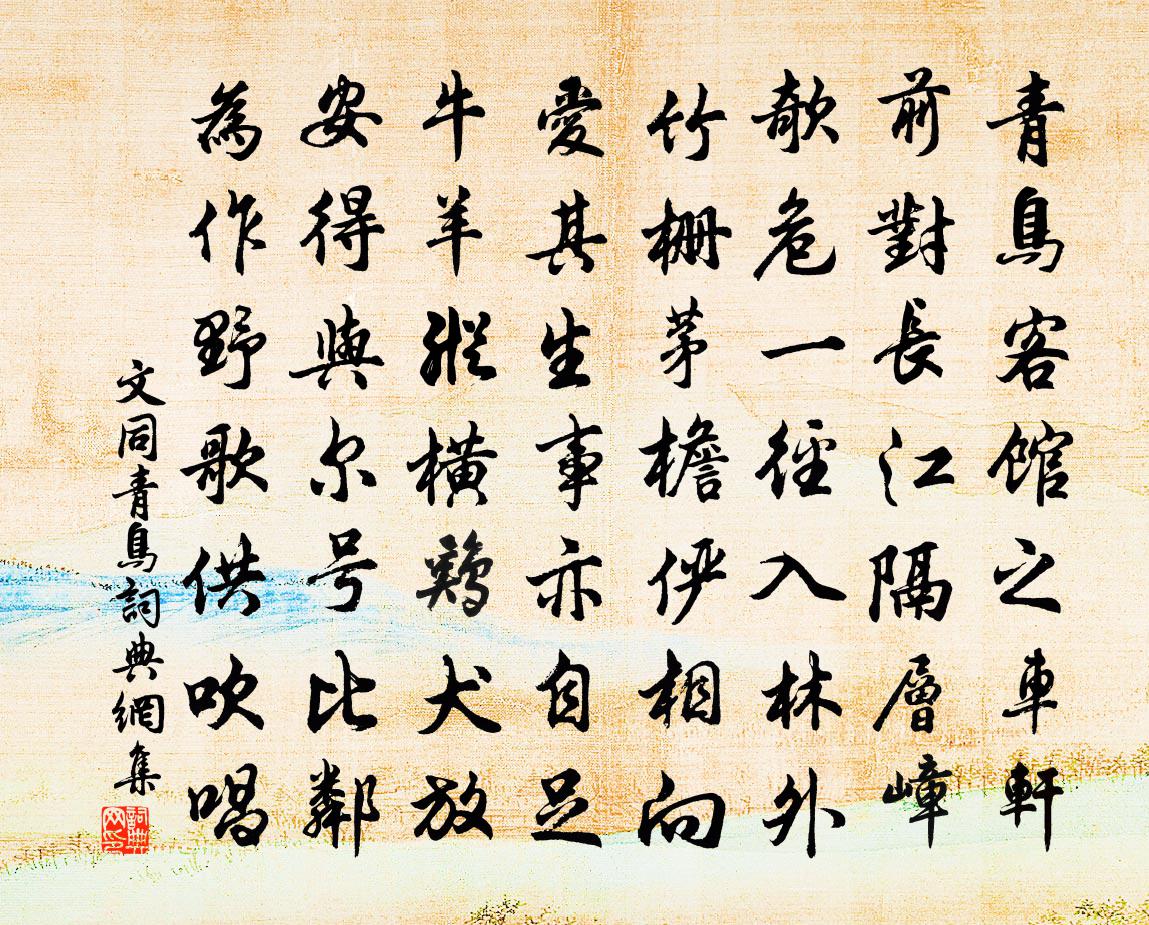 青鳥客館之車軒
前對長江隔層嶂
欹危一徑入林外
竹柵茅檐俨相向
愛其生事亦自足
牛羊縱橫鷄犬放
安得與尔号比鄰
為作野歌供吹唱
文同青鳥詞典網集
詞典網印